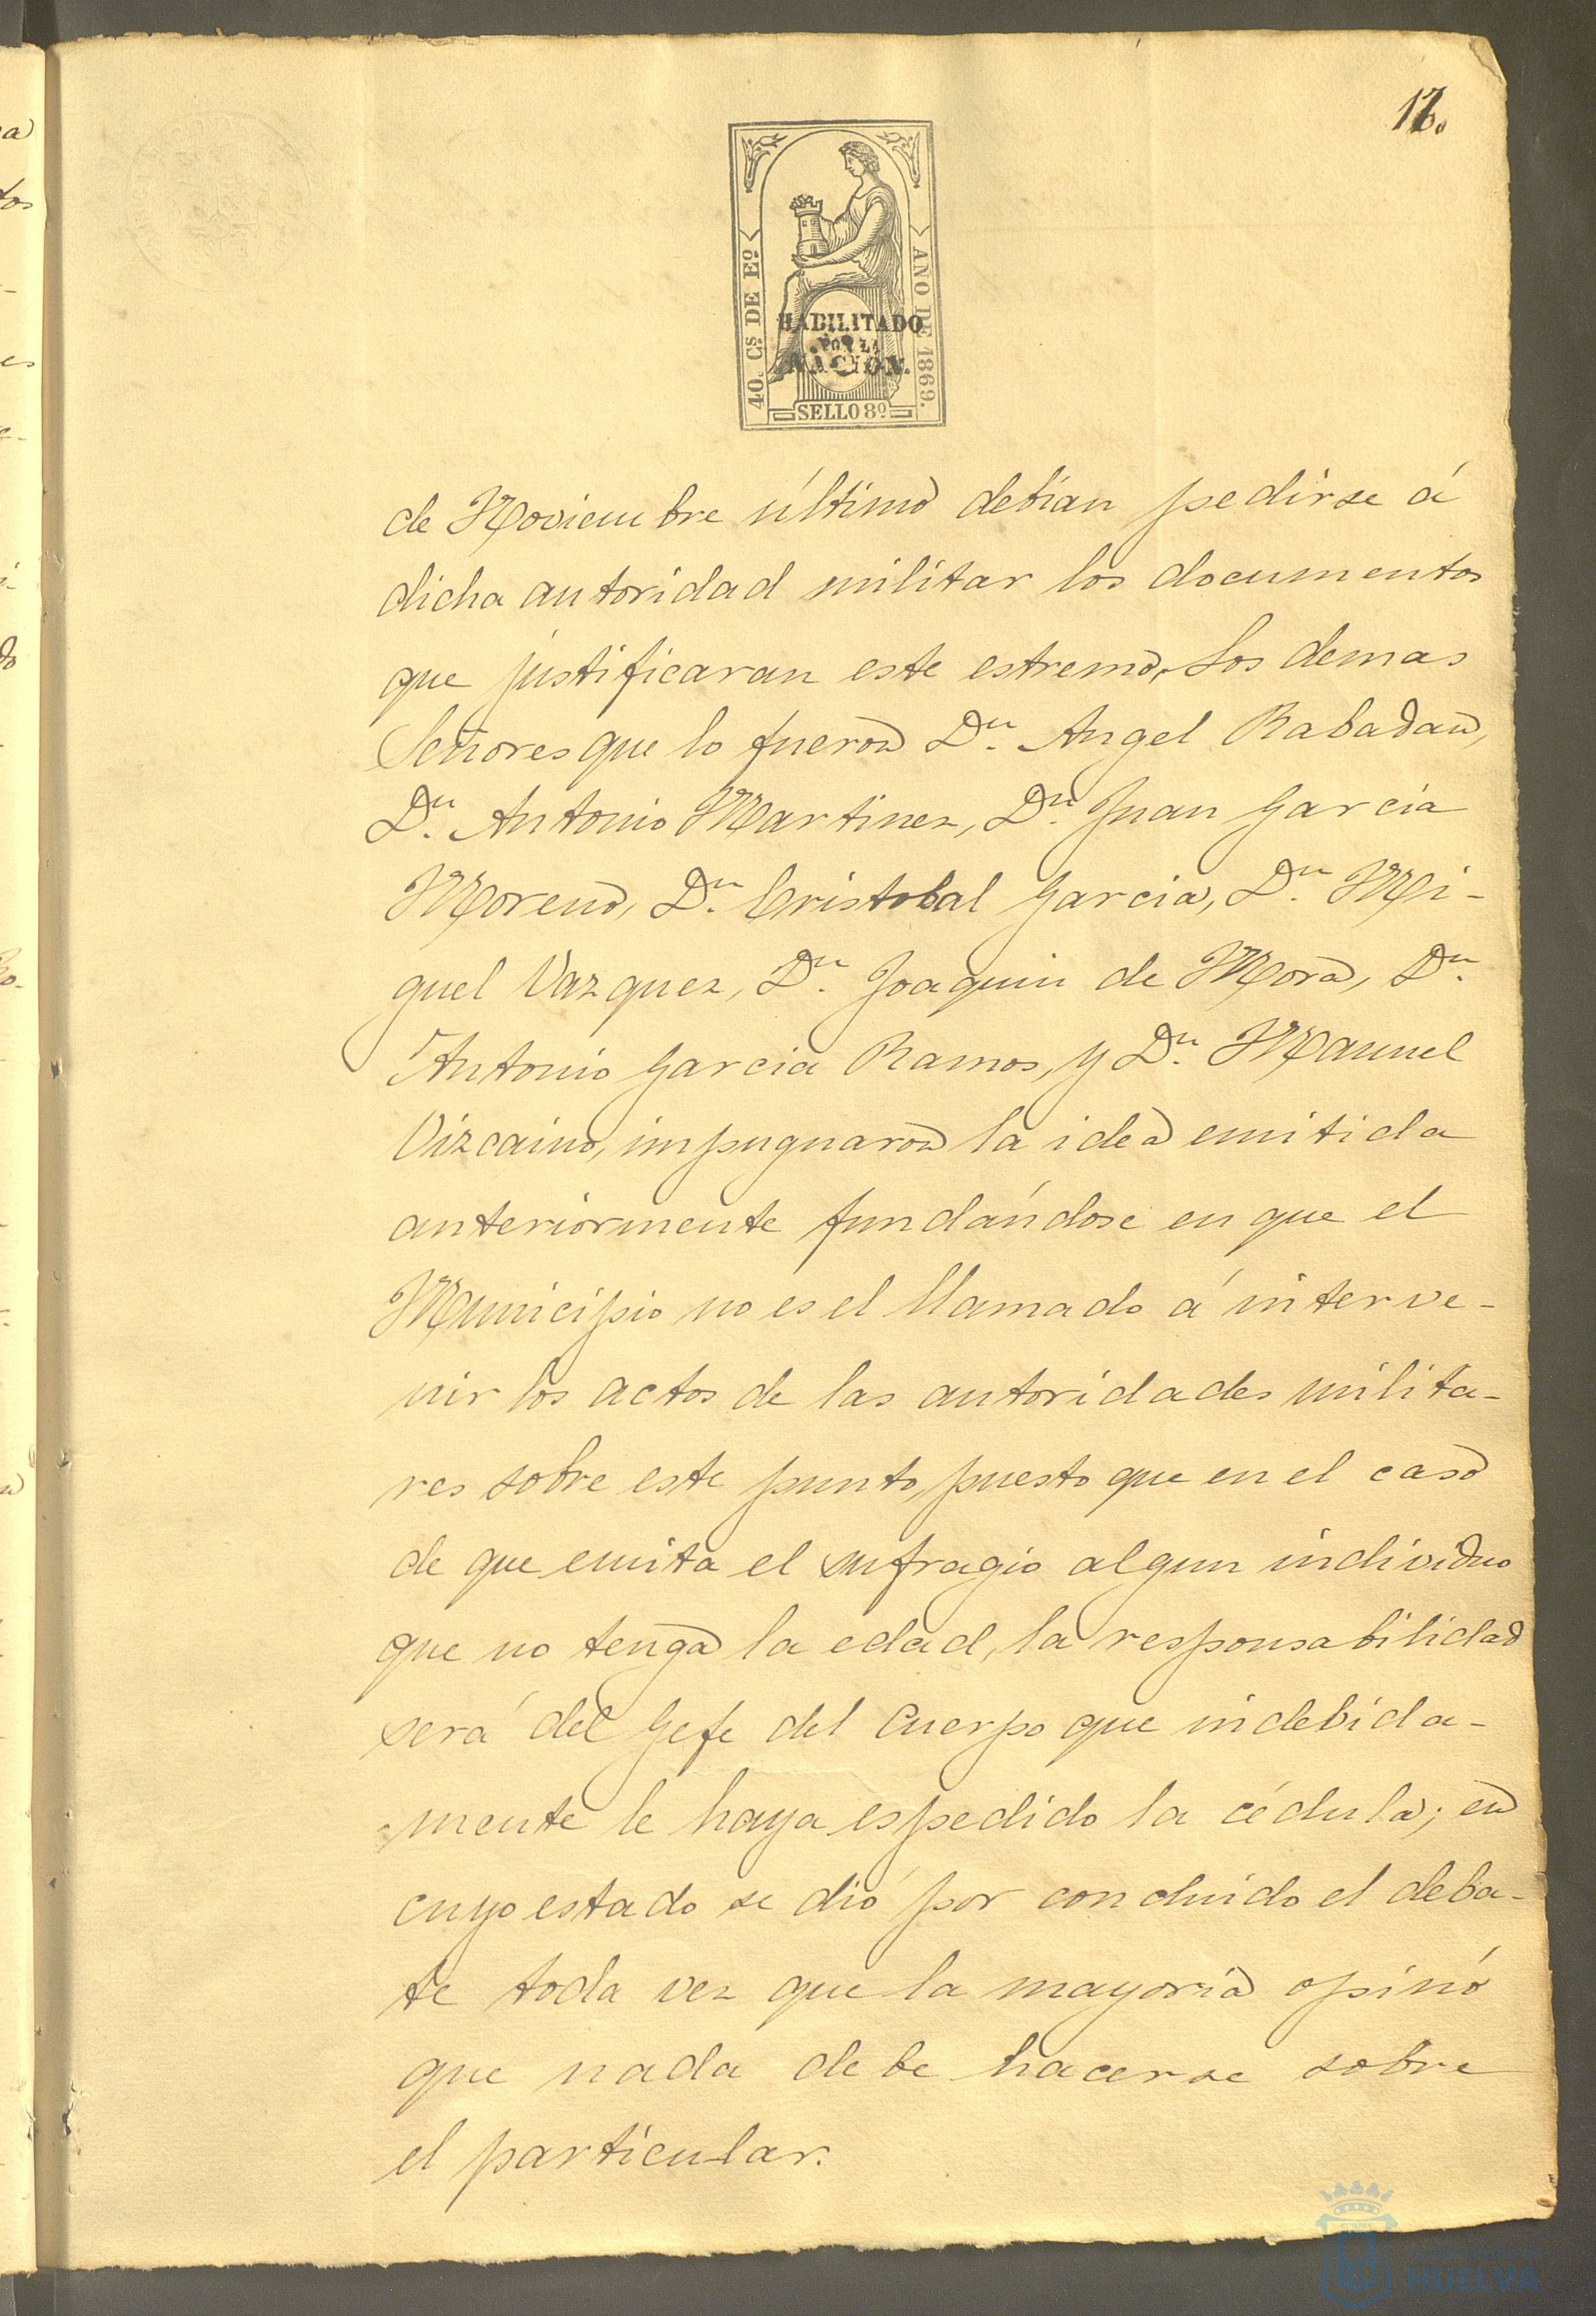 17.
40. Cs DE Eo
AÑO DE 1869.
HABILITADO
POR LA
NACION.
SELLO 8º
de Noviembre último debían pedirse á
dicha autoridad militar los documentos
que justificaran este estremo. Los demas
Señores que lo fueron Dn. Angel Rabadan,
Dn. Antonio Martinez, Dn. Juan Garcia
Moreno, Dn. Cristobal Garcia, Dn. Mi-
guel Vazquez, Dn. Joaquin de Mora, Dn.
Antonio Garcia Ramos, y Dn. Manuel
Vizcaino, impugnaron la idea emitida
anteriormente fundándose en que el
Municipio no es el llamado á interve-
nir los actos de las autoridades milita-
res sobre este punto, puesto que en el caso
de que emita el sufragio algun individuo
que no tenga la edad, la responsabilidad
será del Gefe del Cuerpo que indebida-
mente le haya espedido la cédula; en
cuyo estado se dió por concluido el deba-
te toda vez que la mayoría opinó
que nada debe hacerse sobre
el particular.
HUELVA